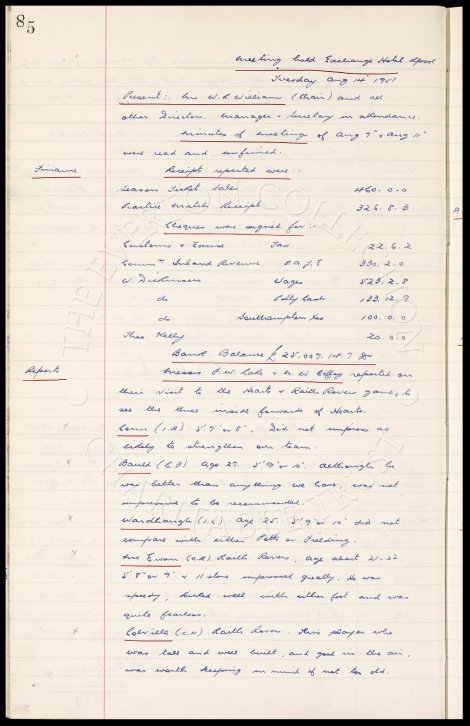 85
Meeting held Exchange Hotel Lpool
Tuesday Aug 14' 1951
Present:. Mr W.R. Williams (Chair) and all
other Directors. Manager & Secretary in attendance.
Minutes of meetings of Aug 7" & Aug 11"
were read and confirmed.
Finance Receipts reported were:-
Season Ticket Sales 460.0.0
Practice Match Receipts 326.8.3
Cheques were signed for:-
Customs & Excise Tax 22.6.2
Commrs Inland Revenue P.A.Y.E 330.2.0
W. Dickinson Wages 523.2.8
do Petty Cash 133.12.9
do Southampton Exs 100.0.0
Theo Kelly 20.0.0
Bank Balance £25.007.14.7 Dr
Reports Messrs J.W. Lake & W. Coffey reported on
their visit to the Hearts & Raith Rovers game, to
see the three inside forwards of Hearts.
Conn (I.R) 5'7 or 8". Did not impress as
likely to strengthen our team.
x Bauld (C.F) Age 27. 5'9" or 10". Although he
was better than anything we have, was not
impressive to be recommended.
x Wardhaugh (I.L) Age 25 5'9" or 10" did not
compare with either Potts or Fielding.
x McEwan (O.R) Raith Rovers. Age about 21-22
5'8" or 9" & 11 stone impressed greatly. He was
speedy, kicked well with either foot and was
quite fearless.
x Colville (C.H) Raith Rovers. This player who
was tall and well built, and good in the air,
was worth keeping in mind if not too old.
THE EVERTON COLLECTION